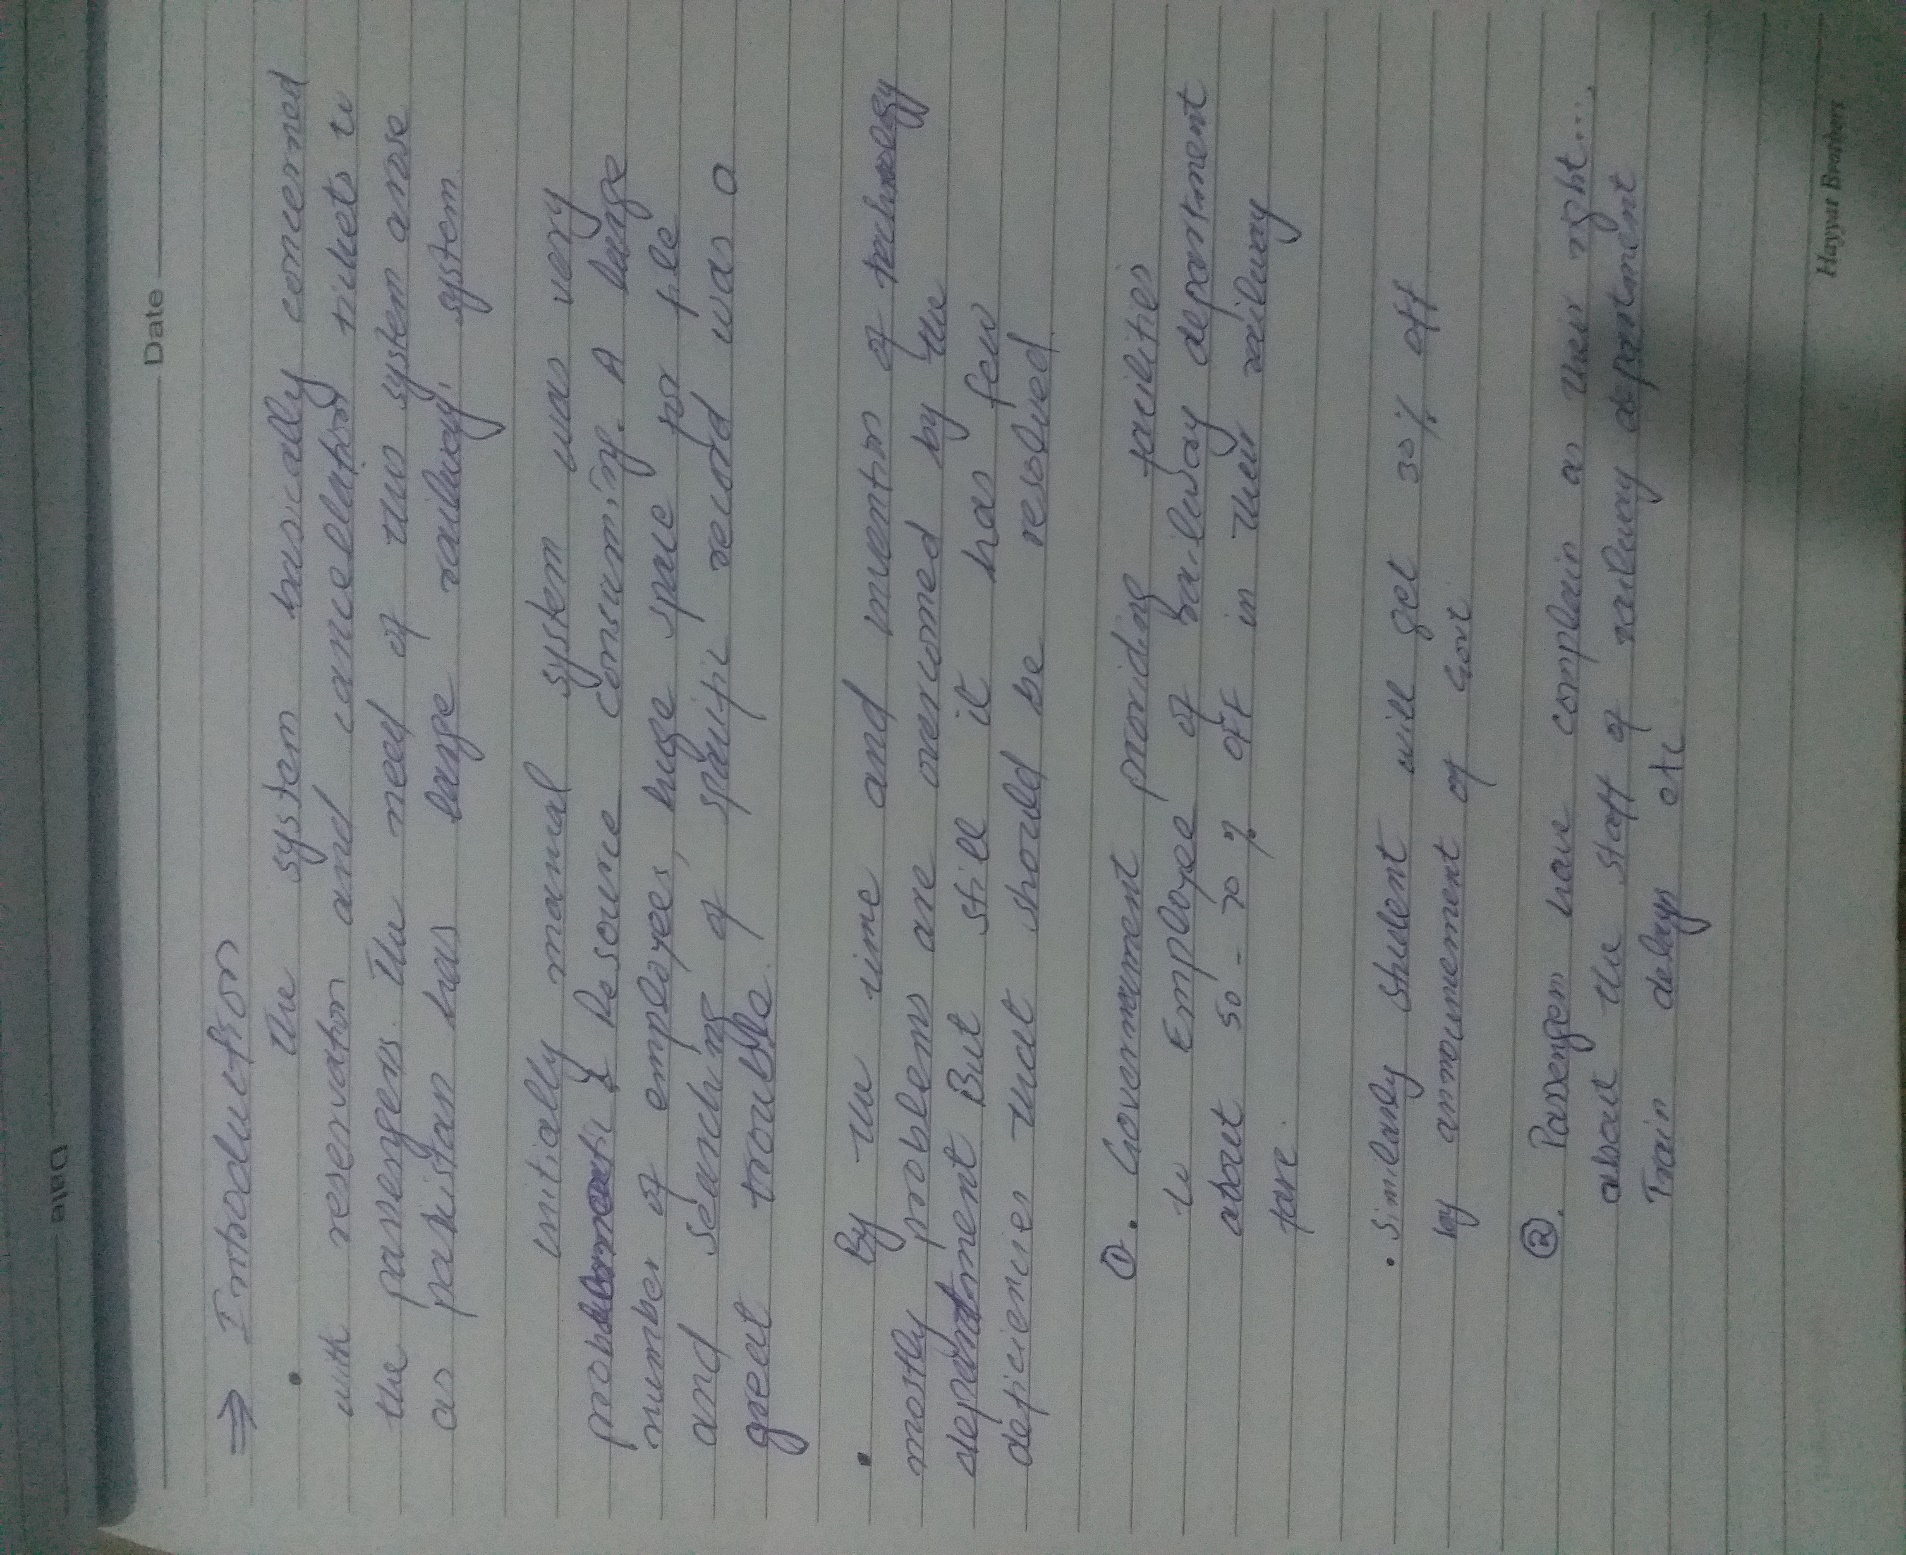 Date
Date
⇒ Introduction
• The system basically concerned
with reservation and cancellation tickets to
the passengers. The need of this system arose
as pakistan has large railway system
initially manual system was very
problematic & Resource consuming. A large
number of employees, huge space for file
and searching of specific record was a
great trouble.
• By the time and invention of technology
mostly problems are overcomed by the
department But still it has few
deficiencies that should be resolved
①. Government providing facilities
to Employee of Railway department
about 50 - 70 % OFF in their railway
fare.
• Similarly student will get 30 % off
by announcement of Govt.
②. Passengers have complain as their right....
about the staff of railway department
Train delays etc
Hayyat Brothers